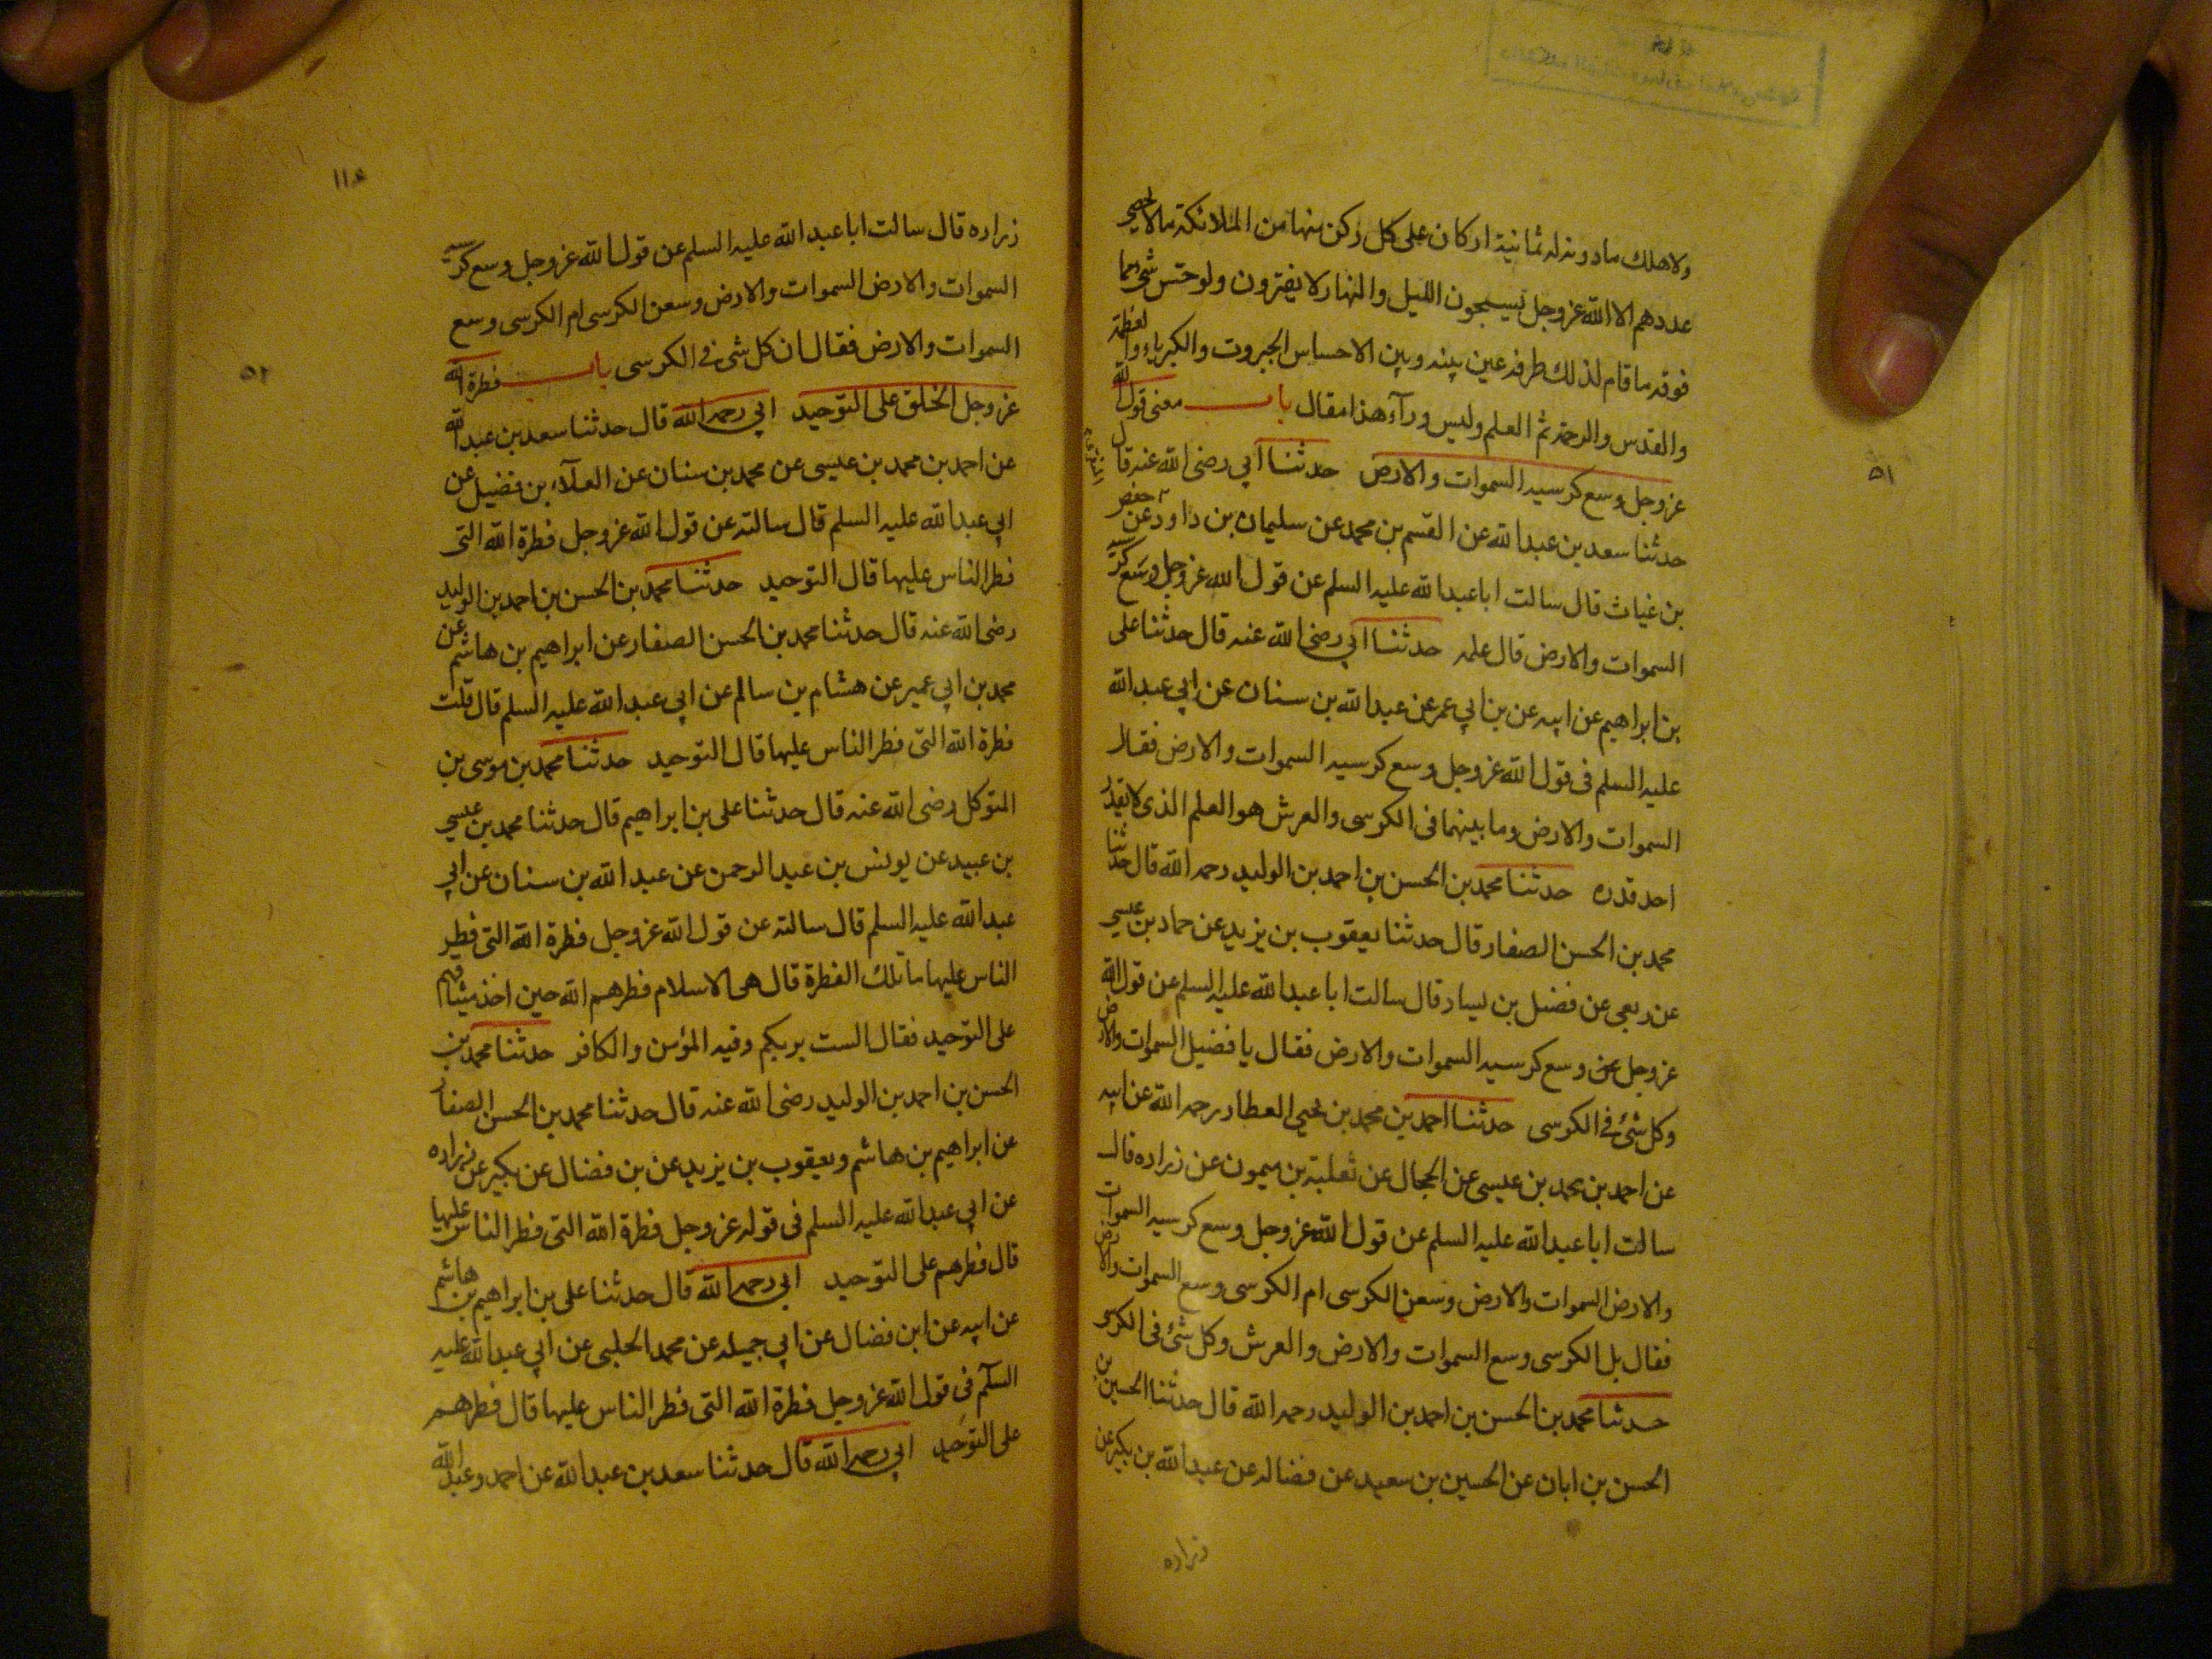 ولاهلك مادونه له ثمانية اركان على كل ركن منها من الملائكة مالا يحصى
عددهم الا الله عزوجل يسبحون الليل والنهار لا يفترون ولو حس شئ مما
فوقه ما قام لذلك طرفه عين بينه وبين الاحساس الجبروت والكبرياء والعظمة
والقدس والرحمة ثم العلم وليس وراء هذا مقال باب معنى قول الله
عزوجل وسع كرسيه السموات والارض حدثنا ابي رضى الله عنه قال
حدثنا سعد بن عبدالله عن القسم بن محمد عن سليمان بن داود عن حفص
بن غياث قال سالت اباعبدالله عليه السلم عن قول الله عزوجل وسع كرسيه
السموات والارض قال علمه حدثنا ابي رضى الله عنه قال حدثنا على
بن ابراهيم عن ابيه عن بن ابي عمر عن عبدالله بن سنان عن ابي عبدالله
عليه السلم فى قول الله عزوجل وسع كرسيه السموات والارض فقال
السموات والارض وما بينهما فى الكرسى والعرش هو العلم الذى لا يقدر
احد قدره حدثنا محمد بن الحسن بن احمد بن الوليد رحمه الله قال حدثنا
محمد بن الحسن الصفار قال حدثنا يعقوب بن يزيد عن حماد بن عيسى
عن ربعى عن فضيل بن يسار قال سالت اباعبدالله عليه السلم عن قول الله
عزوجل عن وسع كرسيه السموات والارض فقال يا فضيل السموات والارض
وكل شئ فى الكرسى حدثنا احمد بن محمد بن يحيى العطار رحمه الله عن ابيه
عن احمد بن محمد بن عيسى عن الحجال عن ثعلبة بن ميمون عن زراره قال
سالت اباعبدالله عليه السلم عن قول الله عزوجل وسع كرسيه السموات
والارض السموات والارض وسعن الكرسى ام الكرسى وسع السموات والارض
فقال بل الكرسى وسع السموات والارض والعرش وكل شئ فى الكرسى
حدثنا محمد بن الحسن بن احمد بن الوليد رحمه الله قال حدثنا الحسين بن
الحسن بن ابان عن الحسين بن سعيد عن فضاله عن عبدالله بن بكير عن
زراره
٥١
١١٤
زراره قال سالت اباعبدالله عليه السلم عن قول الله عزوجل وسع كرسيه
السموات والارض السموات والارض وسعن الكرسى ام الكرسى وسع
السموات والارض فقال ان كل شئ فى الكرسى باب فطرة الله
عزوجل الخلق على التوحيد ابي رحمه الله قال حدثنا سعد بن عبدالله
عن احمد بن محمد بن عيسى عن محمد بن سنان عن العلآء بن فضيل عن
ابي عبدالله عليه السلم قال سالته عن قول الله عزوجل فطرة الله التى
فطر الناس عليها قال التوحيد حدثنا محمد بن الحسن بن احمد بن الوليد
رضى الله عنه قال حدثنا محمد بن الحسن الصفار عن ابراهيم بن هاشم عن
محمد بن ابي عمير عن هشام بن سالم عن ابي عبدالله عليه السلم قال قلت
فطرة الله التى فطر الناس عليها قال التوحيد حدثنا محمد بن موسى بن
المتوكل رضى الله عنه قال حدثنا على بن ابراهيم قال حدثنا محمد بن عيسى
بن عبيد عن يونس بن عبد الرحمن عن عبد الله بن سنان عن ابي
عبدالله عليه السلم قال سالته عن قول الله عزوجل فطرة الله التى فطر
الناس عليها ما تلك الفطرة قال هى الاسلام فطرهم الله حين اخذ ميثاقهم
على التوحيد فقال الست بربكم وفيه المؤمن والكافر حدثنا محمد بن
الحسن بن احمد بن الوليد رضى الله عنه قال حدثنا محمد بن الحسن الصفار
عن ابراهيم بن هاشم ويعقوب بن يزيد عن بن فضال عن بكير عن زراره
عن ابي عبدالله عليه السلم فى قوله عزوجل فطرة الله التى فطر الناس عليها
قال فطرهم على التوحيد ابي رحمه الله قال حدثنا على بن ابراهيم بن هاشم
عن ابيه عن ابن فضال عن ابي جميله عن محمد الحلبى عن ابي عبدالله عليه
السلم فى قول الله عزوجل فطرة الله التى فطر الناس عليها قال فطرهم
على التوحيد ابي رحمه الله قال حدثنا سعد بن عبدالله عن احمد وعبدالله
٥٢